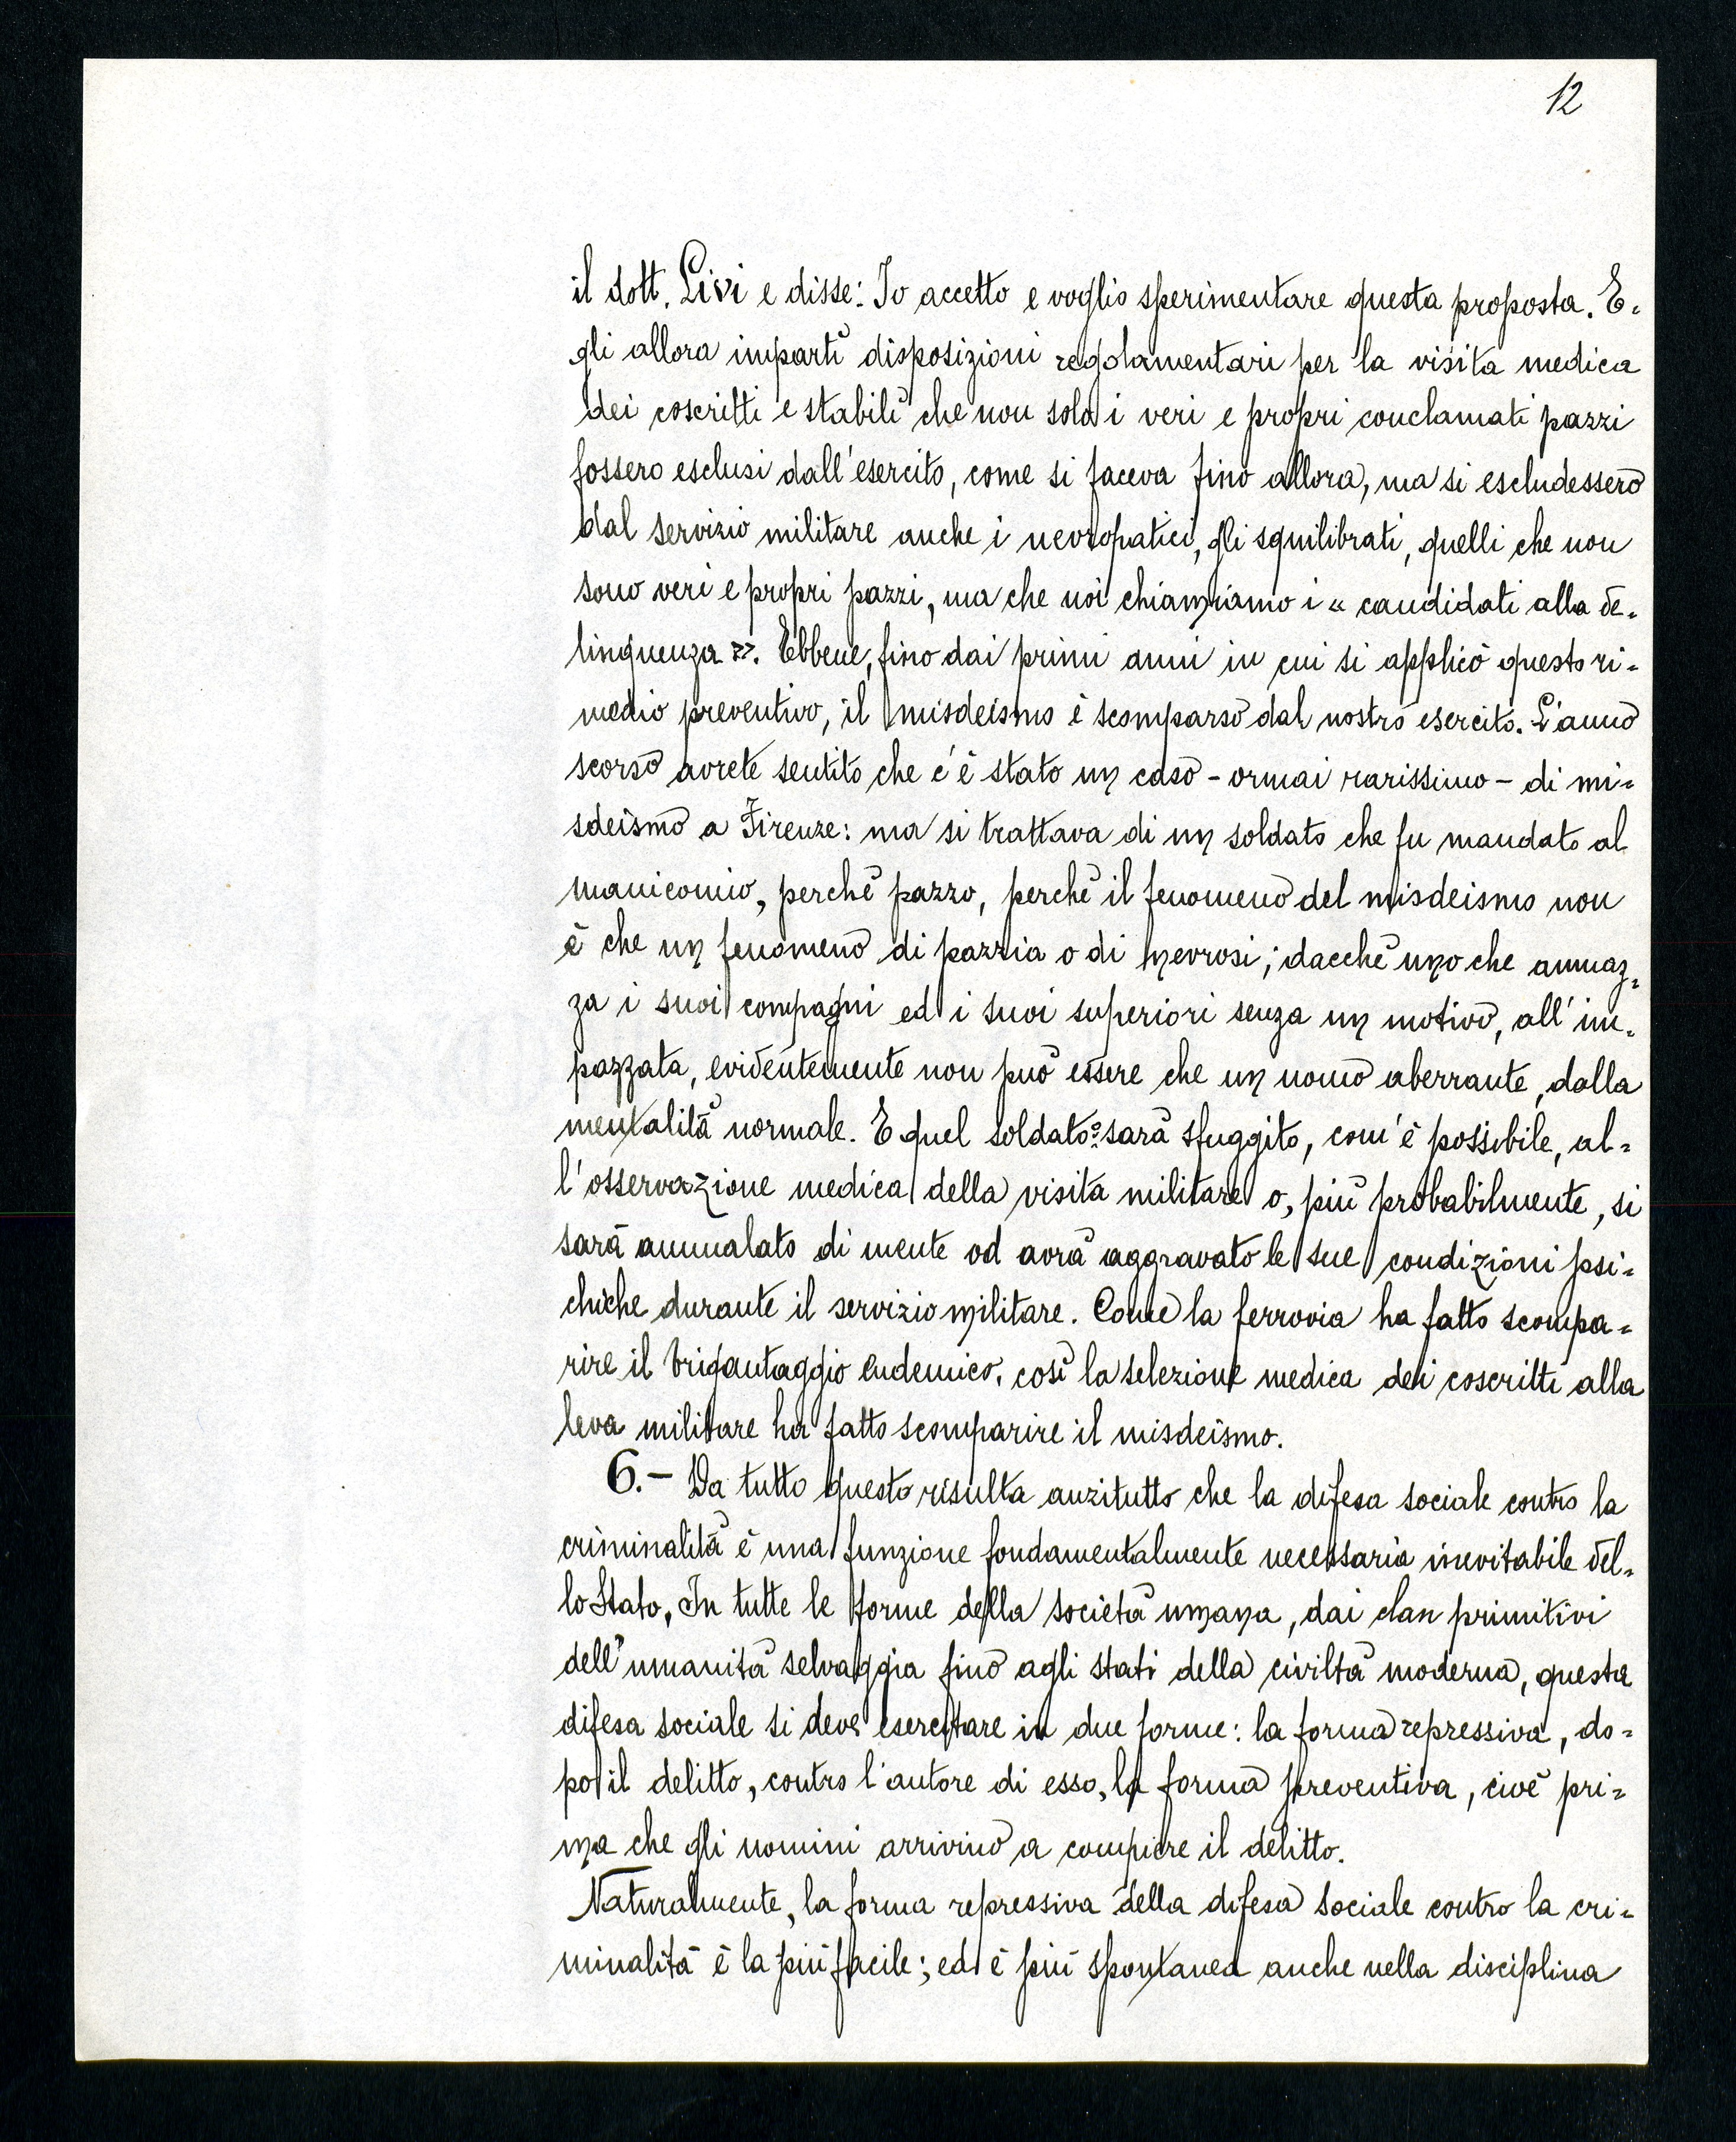 12
il dott. Livi e disse: Io accetto e voglio sperimentare questa proposta. E=
gli allora impartì disposizioni regolamentari per la visita medica
dei coscritti e stabilì che non solo i veri e propri conclamati pazzi
fossero esclusi dall'esercito, come si faceva fino allora, ma si escludessero
dal servizio militare anche i nevropatici, gli squilibrati, quelli che non
sono veri e propri pazzi, ma che noi chiamiamo i « candidati alla de=
linquenza ». Ebbene, fino dai primi anni in cui si applicò questo ri=
medio preventivo, il misdeismo è scomparso dal nostro esercito. L'anno
scorso avrete sentito che c'è stato un caso - ormai rarissimo - di mi=
sdeismo a Firenze: ma si trattava di un soldato che fu mandato al
manicomio, perchè pazzo, perchè il fenomeno del misdeismo non
è che un fenomeno di pazzia o di nevrosi; dacchè uno che ammaz=
za i suoi compagni ed i suoi superiori senza un motivo, all'im=
pazzata, evidentemente non può essere che un uomo aberrante, dalla
mentalità normale. E quel soldato o sarà sfuggito, com'è possibile, al=
l'osservazione medica della visita militare o, più probabilmente, si
sarà ammalato di mente od avrà aggravato le sue condizioni psi=
chiche durante il servizio militare. Come la ferrovia ha fatto scompa=
rire il brigantaggio endemico, così la selezione medica dei coscritti alla
leva militare ha fatto scomparire il misdeismo.
6.- Da tutto questo risulta anzitutto che la difesa sociale contro la
criminalità è una funzione fondamentalmente necessaria inevitabile del=
lo Stato. In tutte le forme della società umana, dai clan primitivi
dell'umanità selvaggia fino agli stati della civiltà moderna, questa
difesa sociale si deve esercitare in due forme: la forma repressiva, do=
po il delitto, contro l'autore di esso, la forma preventiva, cioè pri=
ma che gli uomini arrivino a compiere il delitto.
Naturalmente, la forma repressiva della difesa sociale contro la cri=
minalità è la più facile; ed è più spontanea anche nella disciplina